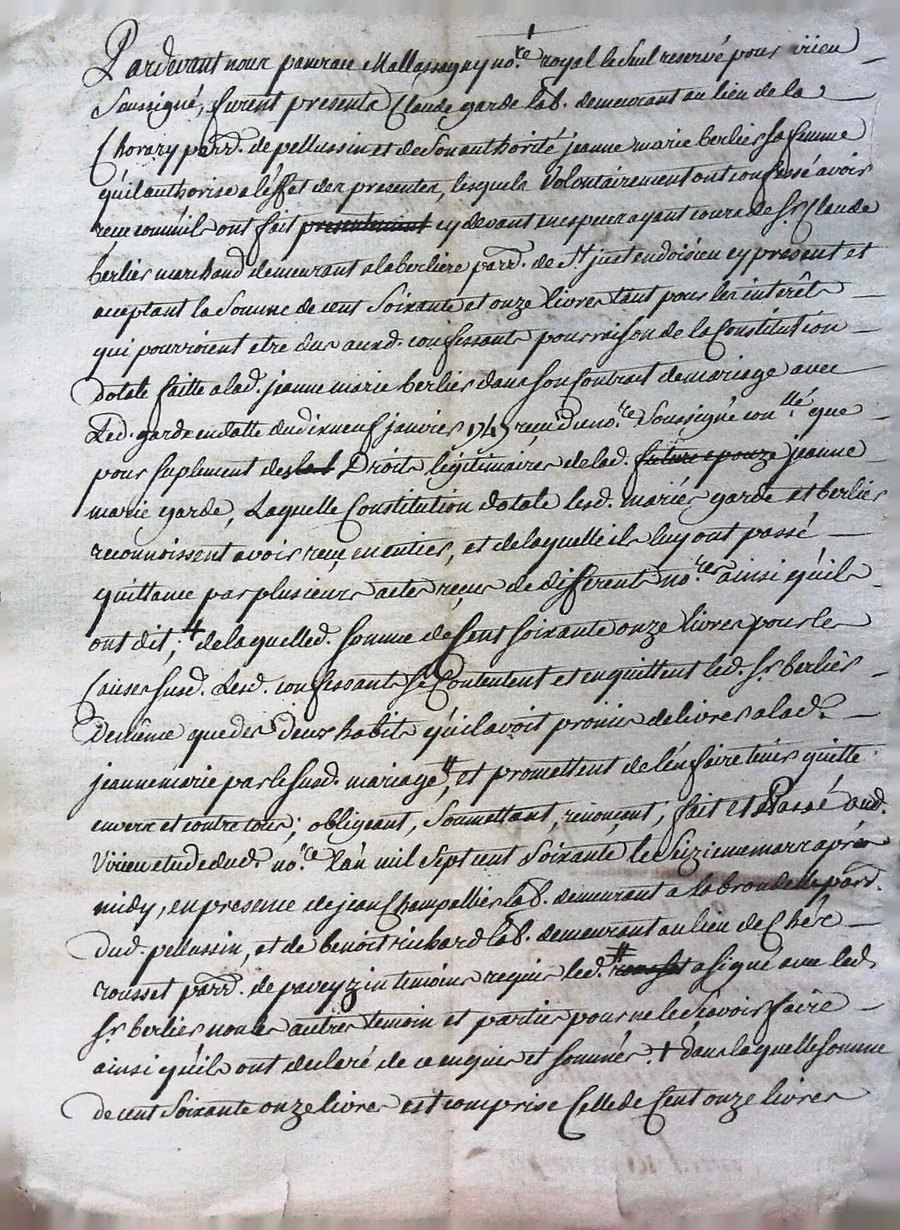 Pardevant nous pancrace Mallassagny no.re royal le Seul reservé pour virieu
Soussigné, furent presents Claude garde lab. demeurant au lieu de la
Chorary parr. de pellussin et de Son authorité jeanne marie berlier Sa femme
quil authorise a l'effet des presentes, lesquels Volontairement ont confessé avoir
receu comm'ils ont fait presentement cy devant en especes ayant cours de Sr. Claude
berlier marchand demeurant a la berlière parr. de St. just en doizieu cy present et
acceptant la Somme de cent Soixante et onze livres tant pour les interêts
qui pourroient etre dus auxd. confessants pour raison de la Constitution
dotale faitte a lad. jeanne marie berlier dans Son Contrat de mariage avec
Led. garde en datte du dixneuf janvier 1747 reçu du no.re Soussigné con.llé que
pour Suplement des Droits légitimaires de lad. future epouze jeanne
marie garde, Laquelle Constitution dotale lesd. mariés garde et berlier
reconnoissent avoir reçu en entier, et de laquelle ils luy ont passé
quittance par plusieurs actes reçus de differents no.res ainsi qu'ils
ont dit; + de laquelle d. Somme de Cent soixante onze livres pour les
Causes susd. Lesd. confessants Se Contentent et en quittent led. Sr. berlier
de même que des Deux habits qu'il avoit promis de livrer a lad.
jeanne marie par le Susd. mariage, et promettent de l'en faire tenir quitte
envers et contre tous; obligeant, Soumettant, renonçent; fait et Passé aud.
Virieu etude dud. no.re L'an mil Sept cent Soixante, le Seizieme mars après
midy, en presence de jean Champallier lab. demeurant a la brondelle parr.
Dud. pellussin, et de benoit richard lab. demeurant au lieu de Chez
rousset parr. de paveyzin temoins requis led. # a signé avec led.
Sr. berlier non les autres temoin et parties pour ne le Sçavoir faire
ainsi qu'ils ont declaré de ce enquis et Sommés. + dans laquelle Somme
de cent Soixante onze livres est comprise Celle de Cent onze livres